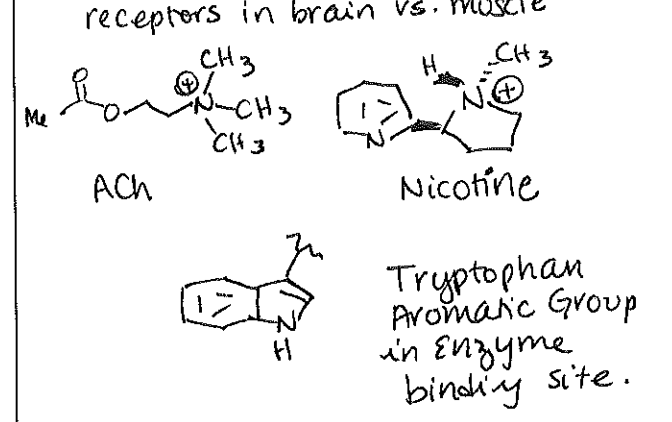 receptors in brain vs. muscle
CH3
O
⊕
Me
O
N-CH3
CH3
ACh
H
CH3
N
⊕
N
Nicotine
N
H
Tryptophan
Aromatic Group
in Enzyme
binding site.